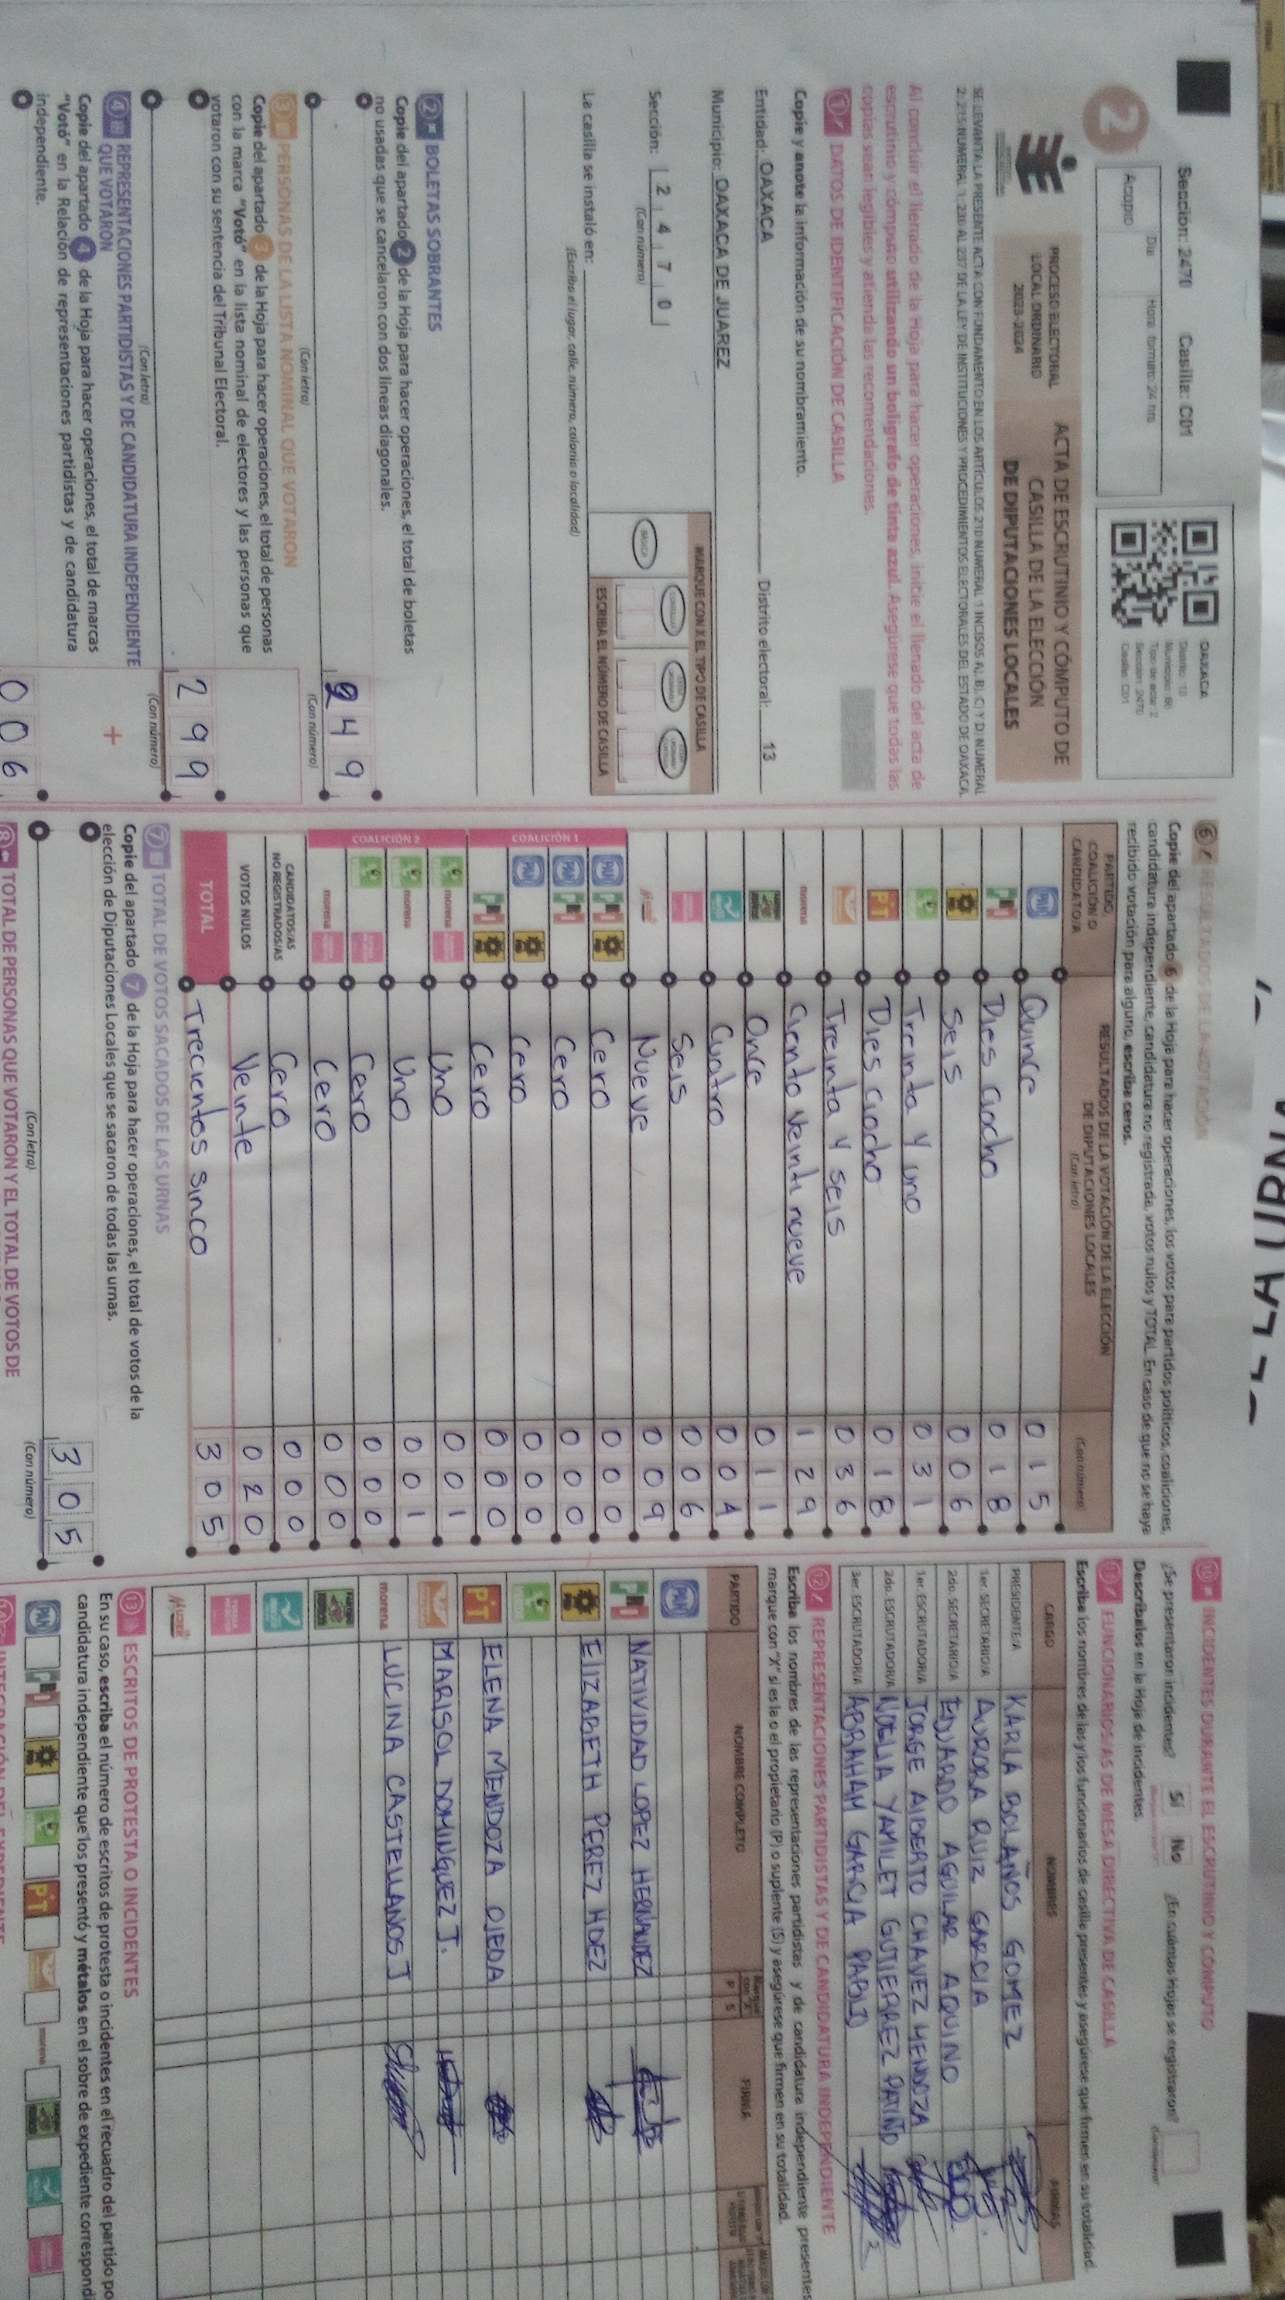 Sección: 2470 Casilla: C01
Día Hora formato 24 hrs
Acopio
2
OAXACA
Tipo de acta: 2
Sección: 2470
Casilla: C01
PROCESO ELECTORAL
LOCAL ORDINARIO
2023-2024
ACTA DE ESCRUTINIO Y CÓMPUTO DE
CASILLA DE LA ELECCIÓN
DE DIPUTACIONES LOCALES
SE LEVANTA LA PRESENTE ACTA CON FUNDAMENTO EN LOS ARTÍCULOS
DE LA LEY DE INSTITUCIONES Y PROCEDIMIENTOS ELECTORALES DEL ESTADO DE OAXACA.
Al concluir el llenado de la Hoja para hacer operaciones, inicie el llenado del acta de
escrutinio y cómputo utilizando un bolígrafo de tinta azul. Asegúrese que todas las
copias sean legibles y atienda las recomendaciones.
1 DATOS DE IDENTIFICACIÓN DE CASILLA
Copie y anote la información de su nombramiento.
Entidad: OAXACA Distrito electoral: 13
Municipio: OAXACA DE JUAREZ
Sección: 2 4 7 0
(Con número)
MARQUE CON X EL TIPO DE CASILLA
ESCRIBA EL NÚMERO DE CASILLA
La casilla se instaló en:
(Escriba el lugar, calle, número, colonia o localidad)
2 BOLETAS SOBRANTES
Copie del apartado 2 de la Hoja para hacer operaciones, el total de boletas
no usadas que se cancelaron con dos líneas diagonales.
249
(Con letra) (Con número)
3 PERSONAS DE LA LISTA NOMINAL QUE VOTARON
Copie del apartado 3 de la Hoja para hacer operaciones, el total de personas
con la marca "Votó" en la lista nominal de electores y las personas que
votaron con su sentencia del Tribunal Electoral.
299
(Con letra) (Con número)
4 REPRESENTACIONES PARTIDISTAS Y DE CANDIDATURA INDEPENDIENTE
QUE VOTARON
+
Copie del apartado 4 de la Hoja para hacer operaciones, el total de marcas
"Votó" en la Relación de representaciones partidistas y de candidatura
independiente.
006
6 RESULTADOS DE LA VOTACIÓN
Copie del apartado 6 de la Hoja para hacer operaciones, los votos para partidos políticos, coaliciones,
candidatura independiente, candidatura no registrada, votos nulos y TOTAL. En caso de que no se haya
recibido votación para alguno, escriba ceros.
PARTIDO,
COALICIÓN O
CANDIDATO/A
RESULTADOS DE LA VOTACIÓN DE LA ELECCIÓN
DE DIPUTACIONES LOCALES
(Con letra) (Con número)
PAN Quince 015
PRI Dies aocho 018
Seis 006
Treinta y uno 031
PT Dies aocho 018
Treinta y seis 036
morena Ciento veinti nueve 129
Once 011
Cuatro 004
Seis 006
Nueve 009
COALICIÓN 1
PAN PRI Cero 000
PAN PRI Cero 000
PAN Cero 000
PRI Cero 000
COALICIÓN 2
morena Uno 001
morena Uno 001
Cero 000
morena Cero 000
CANDIDATOS/AS
NO REGISTRADOS/AS Cero 000
VOTOS NULOS Veinte 020
TOTAL Trecientos sinco 305
7 TOTAL DE VOTOS SACADOS DE LAS URNAS
Copie del apartado 7 de la Hoja para hacer operaciones, el total de votos de la
elección de Diputaciones Locales que se sacaron de todas las urnas.
305
(Con letra) (Con número)
8 TOTAL DE PERSONAS QUE VOTARON Y EL TOTAL DE VOTOS DE
10 INCIDENTES DURANTE EL ESCRUTINIO Y CÓMPUTO
¿Se presentaron incidentes? Sí No ¿En cuántas Hojas se registraron?
Descríbalos en la Hoja de incidentes.
11 FUNCIONARIOS/AS DE MESA DIRECTIVA DE CASILLA
Escriba los nombres de las y los funcionarios de casilla presentes y asegúrese que firmen en su totalidad.
CARGO NOMBRES FIRMAS
PRESIDENTE/A KARLA BOLAÑOS GOMEZ
1er. SECRETARIO/A AURORA RUIZ GARCIA
2do. SECRETARIO/A EDUARDO AGUILAR AQUINO
1er. ESCRUTADOR/A JORGE AlBERTO CHAVEZ MENDOZA
2do. ESCRUTADOR/A NOELIA YAMILET GUTIERREZ PATIÑO
3er. ESCRUTADOR/A ABRAHAM GARCIA PABLO
12 REPRESENTACIONES PARTIDISTAS Y DE CANDIDATURA INDEPENDIENTE
Escriba los nombres de las representaciones partidistas y de candidatura independiente presentes,
marque con "X" si es la o el propietario (P) o suplente (S) y asegúrese que firmen en su totalidad.
PARTIDO NOMBRE COMPLETO P S FIRMA
PAN
PRI NATIVIDAD LOPEZ HERNANDEZ
ElIZABETH PEREZ HDEZ
PT ELENA MENDOZA OJEDA
MARISOL DOMINGUEZ J.
morena LUCINA CASTELLANOS J
13 ESCRITOS DE PROTESTA O INCIDENTES
En su caso, escriba el número de escritos de protesta o incidentes en el recuadro del partido po
candidatura independiente que los presentó y métalos en el sobre de expediente correspondi
PAN PRI PT morena